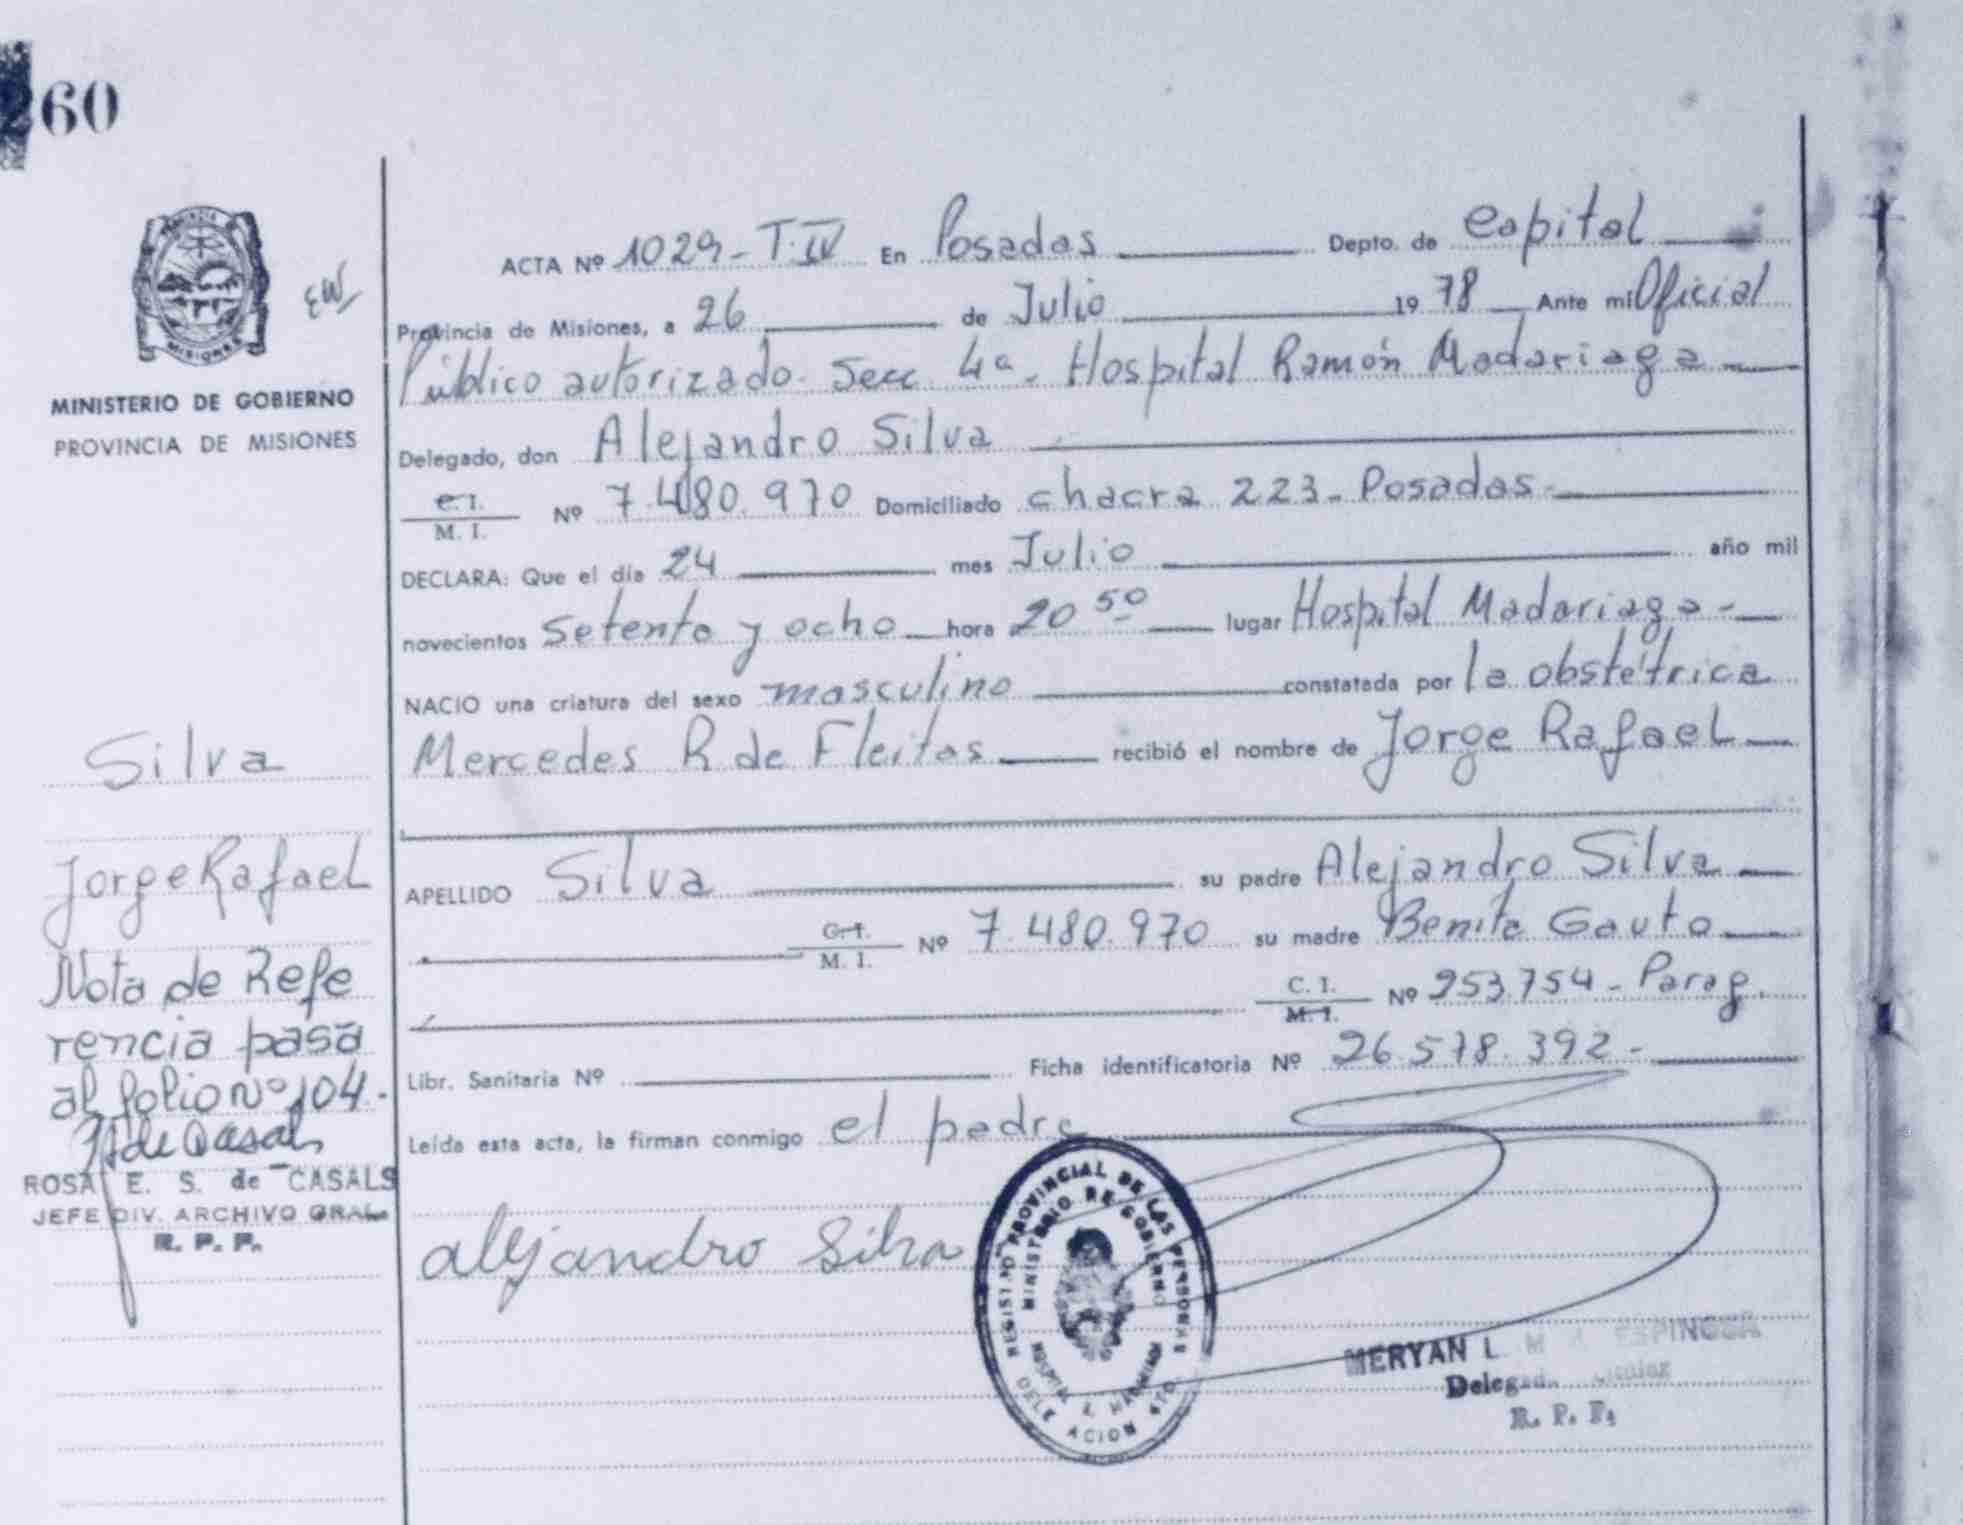 260
MISIONES
MINISTERIO DE GOBIERNO
PROVINCIA DE MISIONES
ACTA Nº 1029-T.IV En Posadas Depto. de Capital
Provincia de Misiones, a 26 de Julio 1978 Ante mi Oficial
Público autorizado. Secc 4ª. Hospital Ramón Madariaga
Delegado, don Alejandro Silva
C. I.
M. I. Nº 7.480.970 Domiciliado chacra 223- Posadas-
DECLARA: Que el día 24 mes Julio año mil
novecientos Setenta y ocho hora 20 50 lugar Hospital Madariaga-
NACIO una criatura del sexo masculino constatada por la obstétrica
Mercedes R de Fleitas recibió el nombre de Jorge Rafael
APELLIDO Silva su padre Alejandro Silva
C. I.
M. I. Nº 7.480.970 su madre Benita Gauto
C. I.
M. I. Nº 953.754- Parag.
Libr. Sanitaria Nº Ficha identificatoria Nº 26.578.392-
Leída esta acta, la firman conmigo el padre
alejandro Silva
Silva
Jorge Rafael
Nota de Refe
rencia pasa
al folio nº 104.-
de Casals
ROSA E. S. de CASALS
JEFE DIV. ARCHIVO GRAL.
R. P. P.
REGISTRO PROVINCIAL DE LAS PERSONAS
MINISTERIO DE GOBIERNO
HOSPITAL R. MADARIAGA
DELEGACION 4TO.
MERYAN L. M ESPINOSA
Delegada Titular
R. P. P.